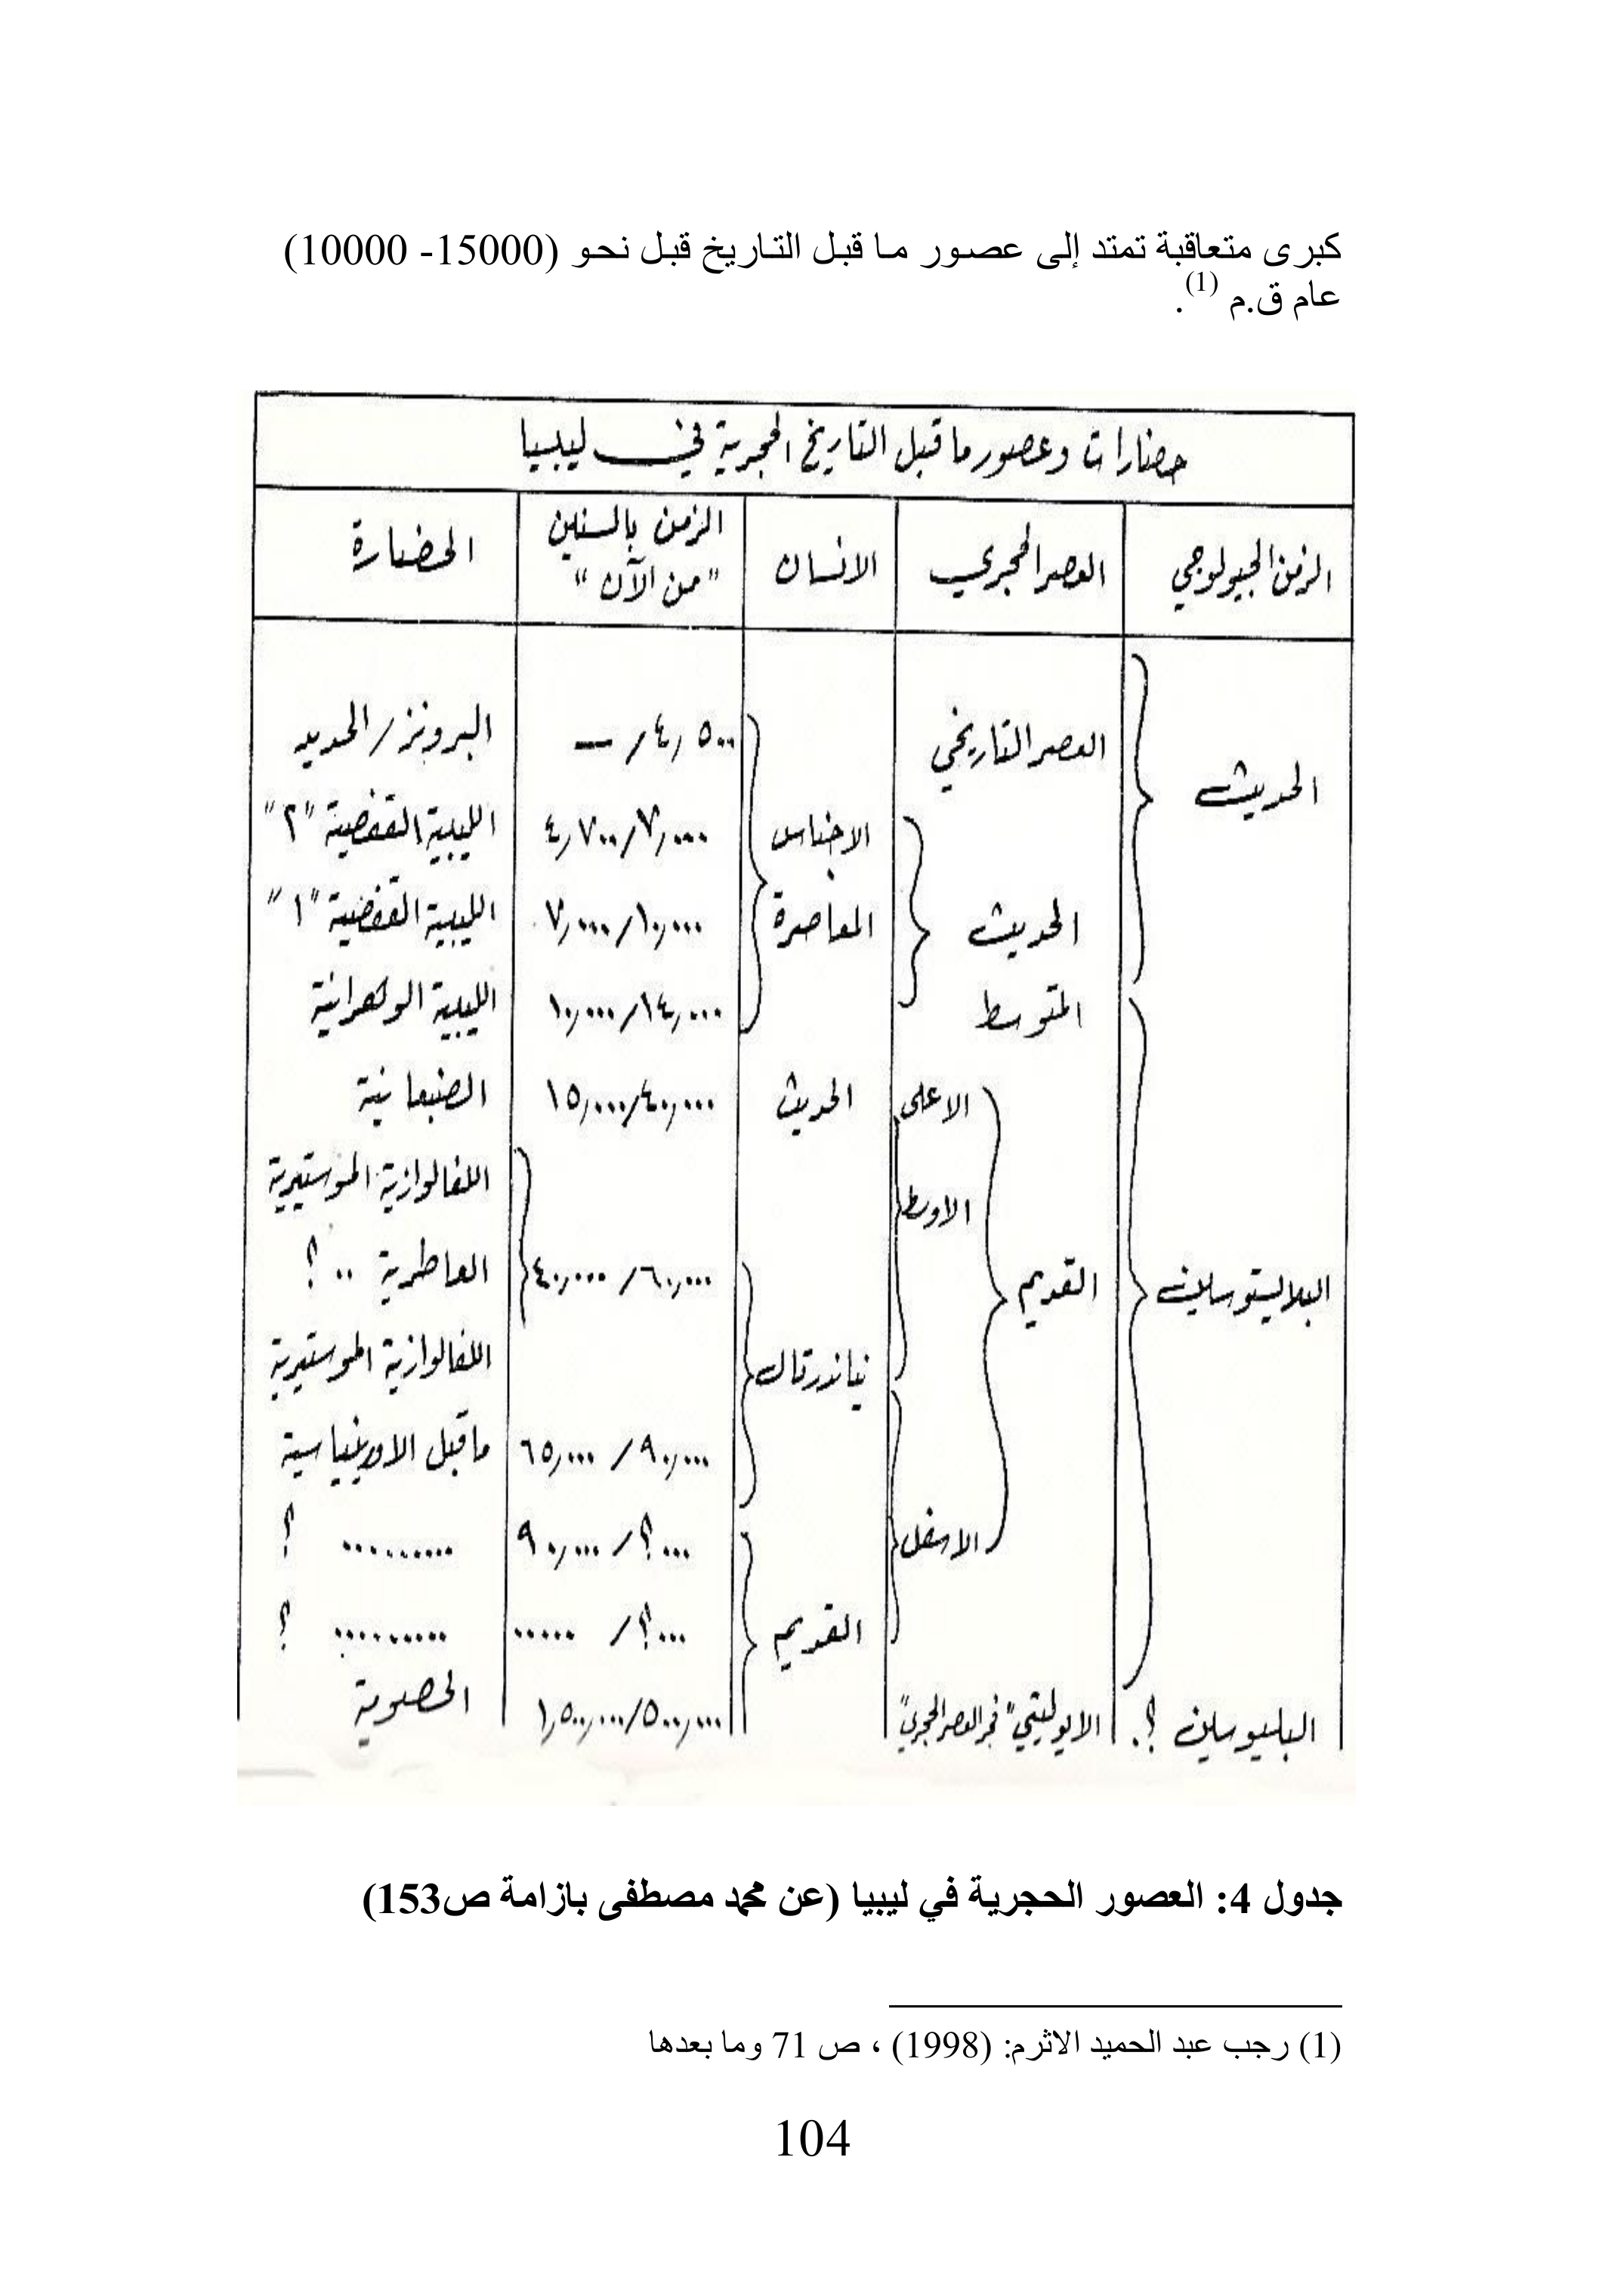 كبرى متعاقبة تمتد إلى عصور ما قبل التاريخ قبل نحو (15000- 10000)
عام ق.م (1).
حضارات وعصور ما قبل التاريخ الحجرية في ليبيا
الزمن الجيولوجي | العصر الحجري | الانسان | الزمن بالسنين "من الآن" | الحضارة
العصر التاريخي | ٤,٥٠٠/— | البرونز/الحديد
الحديث
الاجناس | ٧,٠٠٠/٤,٧٠٠ | الليبية القفصية "٢"
الحديث | المعاصرة | ١٠,٠٠٠/٧,٠٠٠ | الليبية القفصية "١"
المتوسط | ١٤,٠٠٠/١٠,٠٠٠ | الليبية الوهرانية
الاعلى | الحديث | ٤٠,٠٠٠/١٥,٠٠٠ | الضبعانية
الاوسط | اللفالوازية الموستيرية
البلايستوسين | القديم | ٦٠,٠٠٠/٤٠,٠٠٠ | العاطرية ..؟
نياندرتال | اللفالوازية الموستيرية
٩٠,٠٠٠/٦٥,٠٠٠ | ما قبل الاورينياسية
الاسفل | ...؟/٩٠,٠٠٠ | .......... ؟
القديم | ...؟/..... | .......... ؟
البليوسين ؟. | الايوليتي "فجر العصر الحجري" | ٥٠٠,٠٠٠/١,٥٠٠,٠٠٠ | الحصوية
جدول 4: العصور الحجرية في ليبيا (عن محمد مصطفى بازامة ص153)
(1) رجب عبد الحميد الاثرم: (1998) ، ص 71 وما بعدها
104